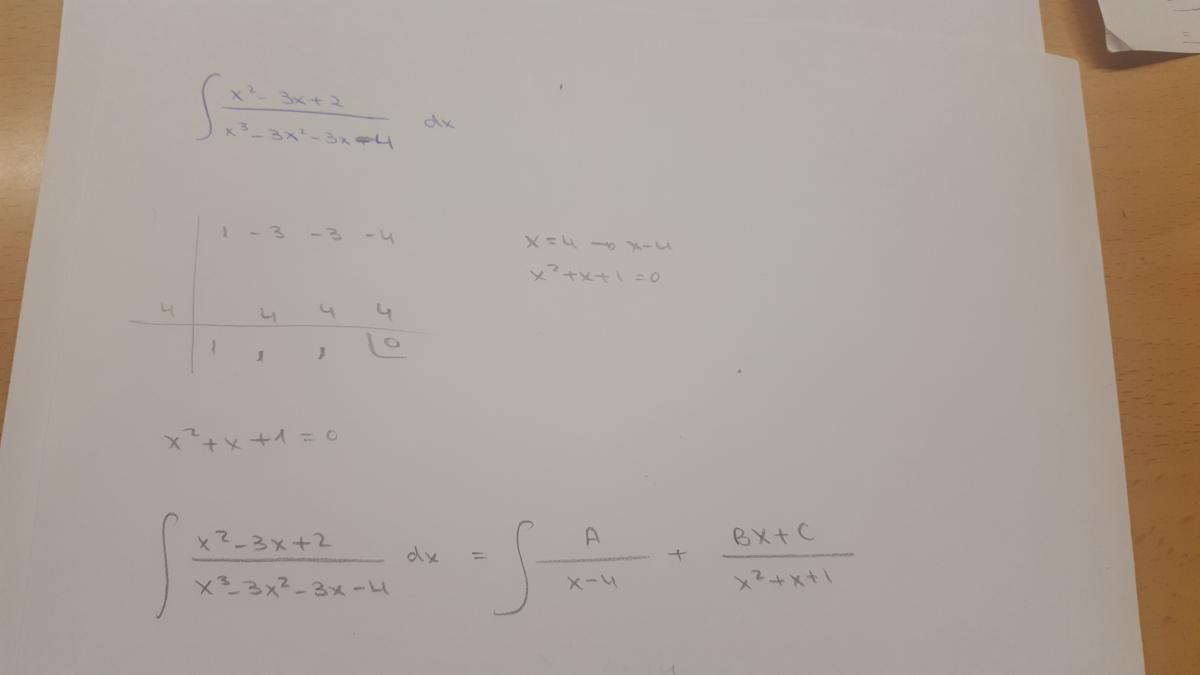 ∫ x² - 3x + 2 / x³ - 3x² - 3x - 4 dx
1 -3 -3 -4
x = 4 → x-4
x² + x + 1 = 0
4 4 4 4
1 1 1 0
x² + x + 1 = 0
∫ x² - 3x + 2 / x³ - 3x² - 3x - 4 dx = ∫ A / x-4 + Bx + C / x² + x + 1